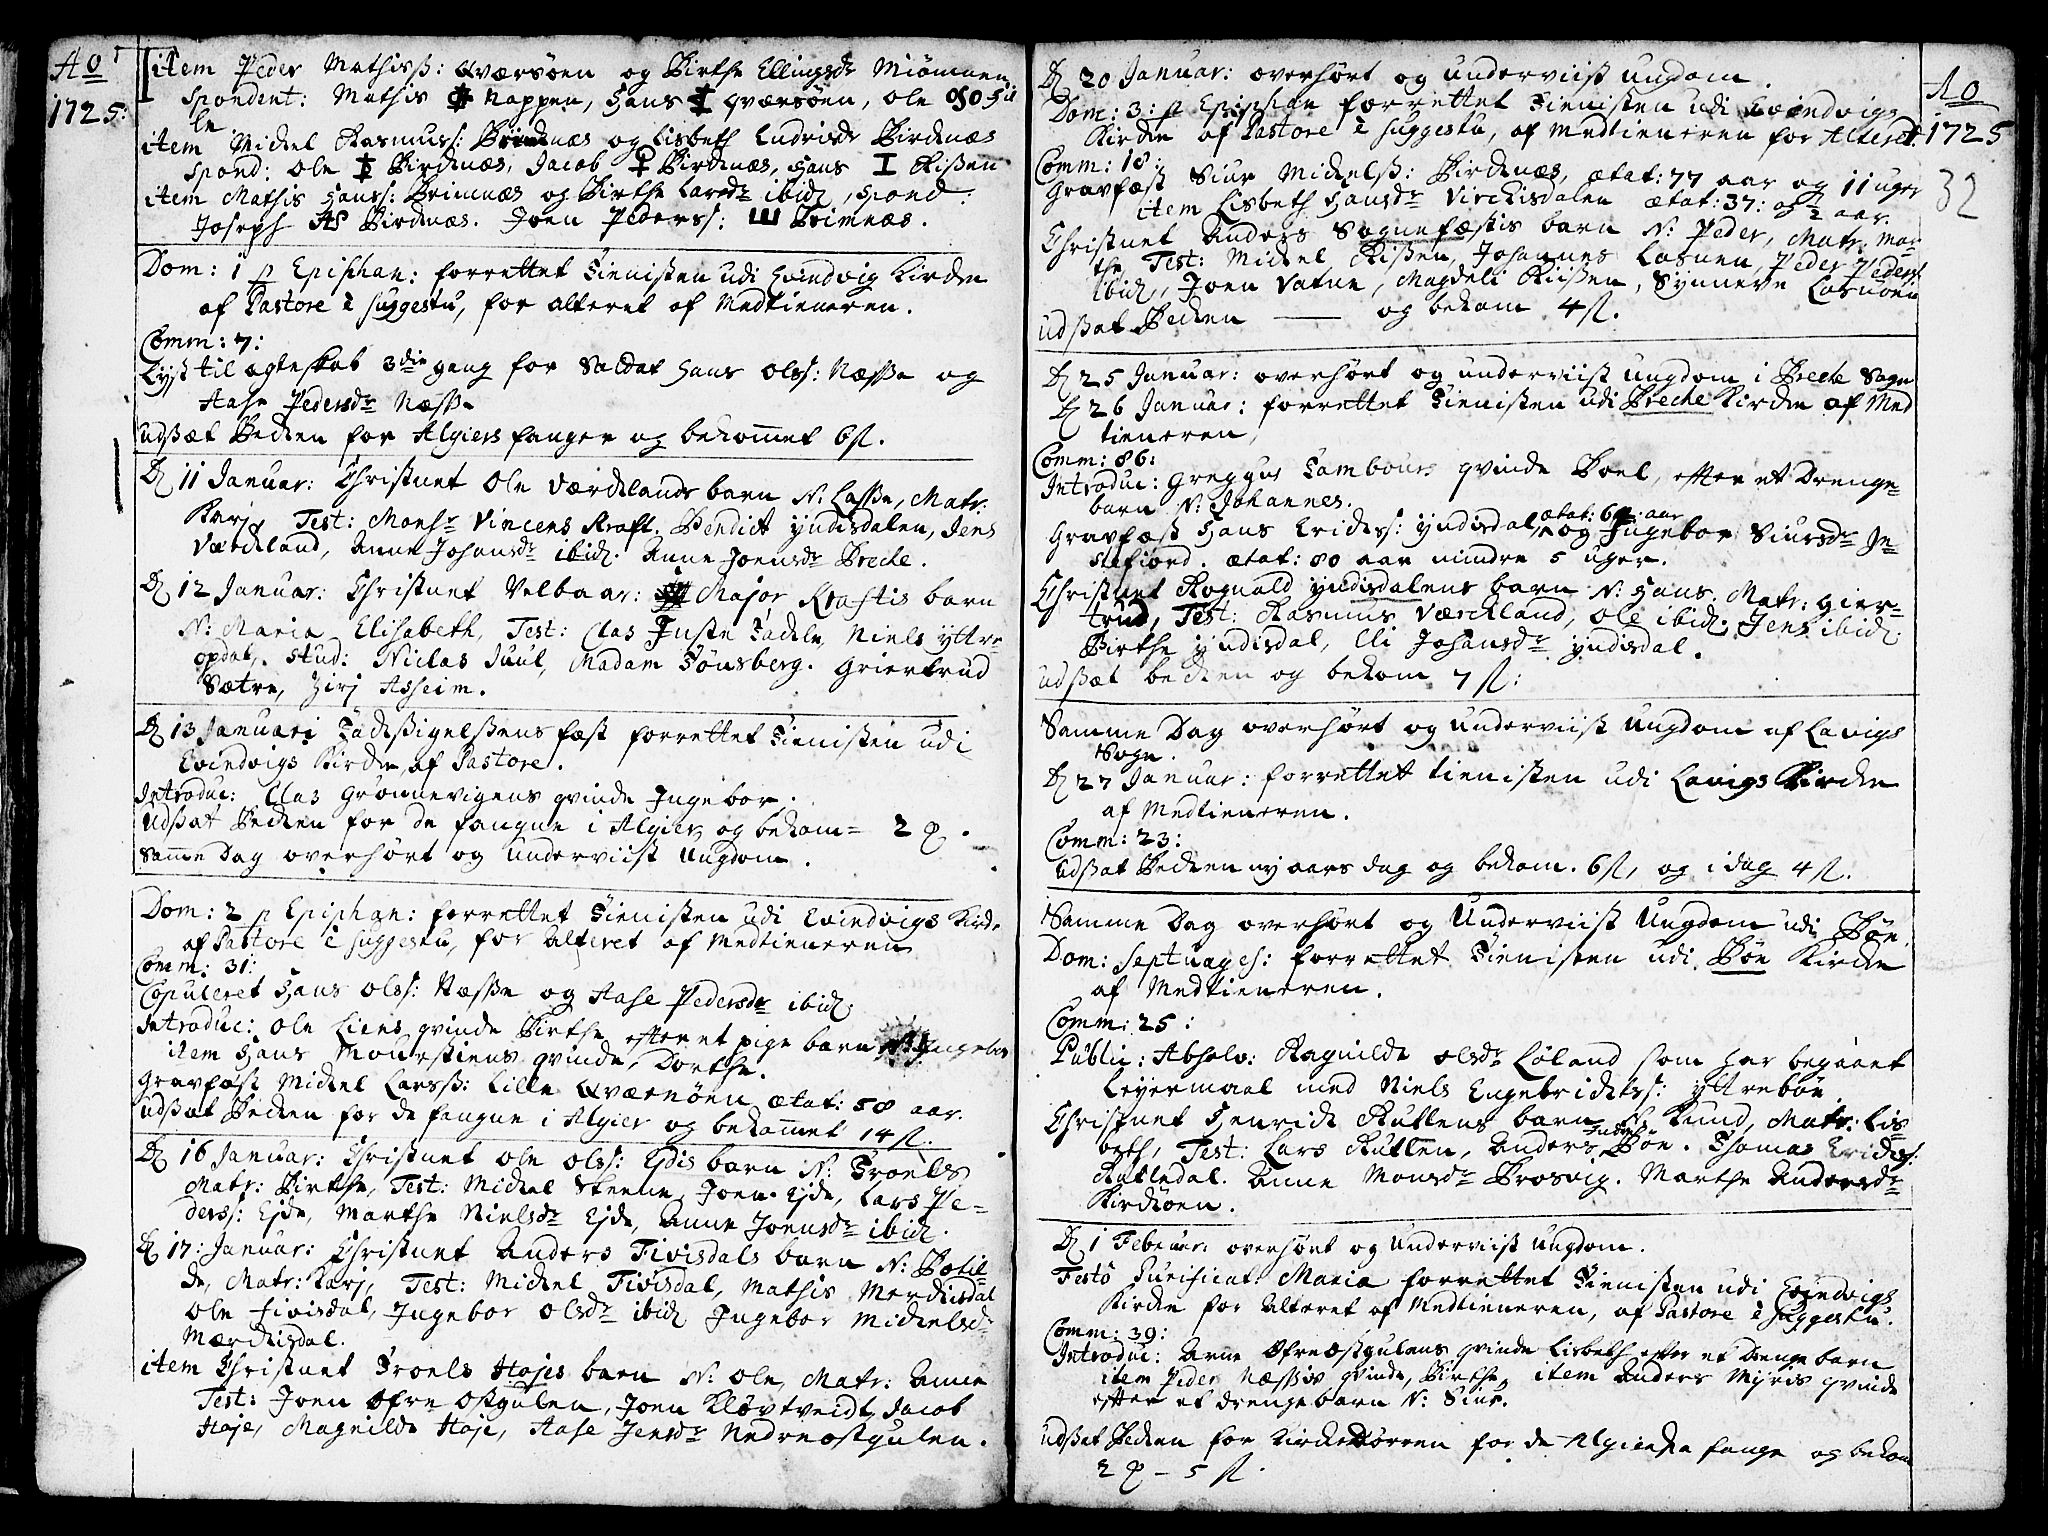 Ao
1725:
item Peder Mathisß: Qværsöen og Birthe Ellingsdr Miömnen
Spondent: Mathis Nappen, Hans Qværsöen, Ole
item Mickel Rasmuss: Birchnæs og Lisbeth Endrisdr Birchnæs
Spond: Ole Birchnæs, Jacob Birchnæs, Hans I Rißen
item Mathis Hanss: Brimnæs og Birthe Larsdr ibid, Spond.
Joseph AS Birchnæs. Joen Pederss: Brimnæs.
Dom: 1 p Epiphan: forrettet Tienisten udi Evindvig Kircke
af Pastore è suggestu, for alteret af Medtieneren.
Comm: 7:
Lyst til egteskab 3die gang for Saldat Hans Olss: Næsse og
Aase Pedersdr Næsse
Udsat Becken for Algiers fanger og bekommet 6 s.
D 11 Januar: Christnet Ole Værcklands barn N: Lasse, Matr:
Kari, Test: Monsr Vincens Kraft. Bendict Yndisdalen, Jens
Værckland, Anne Johansdr ibid. Anne Joensdr Brecke.
D 12 Januar: Christnet Velbaar: Major Kraftis barn
N: Maria Elisabeth, Test: Clas Juste Tackle, Niels Yttre
opdal, Stud: Niclas Juul, Madam Tönsberg. Giertrud
Sætre, Zirj Asheim.
D 13 Januari Tacksigelsens fæst forrettet Tienisten udi
Evindvigs Kircke, af Pastore.
Introduc: Clas Grönnevigens qvinde Ingebor.
Udsat Becken for de fangne i Algier og bekom = 2
Samme Dag overhört og Underviist Ungdom.
Dom: 2 p Epiphan: forrettet Tienisten udi Evindvigs Kirck.
af Pastore è suggestu, for Alteret af Medtieneren
Comm: 31:
Copuleret Hans Olss: Næsse og Aase Pedersdr ibid.
Introduc: Ole Liens qvinde Birthe efter et pige barn N: Ingebor
item Hans Mourstiens qvinde, Dorthe.
Gravfæst Mickel Larsß: Lille Qværnöen ætat: 58 aar.
Udsat Becken for de fangne i Algier og bekommet 14 s.
D 16 Januar: Christnet Ole Olss: Ejdis barn N: Troels
Matr: Birthe, Test: Mickel Steene, Joen Ejde, Lars Pe-
derss: Ejde, Marthe Nielsdr Ejde, Anne Joensdr ibid.
D 17: Januar: Christnet Anders Tivisdals barn N: Botil
de, Matr: Karj, Test: Mickel Tivisdal, Mathis Merckisdal
Ole Tivisdal, Ingebor Olsdr ibid Ingebor Mickelsdr
Mærckisdal.
item Christnet Troels Højes barn N: Ole, Matr: Anne
Test: Joen Öfre Ostgulen, Joen Klöftveidt, Jacob
Höje, Magnilde Höje, Aase Jensdr Nedreostgulen.
Ao
1725
32
D 20 Januar: overhört og underviist ungdom.
Dom: 3: p Epiphan forrettet Tienisten udi Evindvigs
Kircke af Pastore è suggestu, af Medtieneren for Alteret.
Comm: 18:
Gravfæst Siur Mickelß: Birchnæs, ætat: 77 aar og 11 uger
item Lisbeth Hansdr Virckisdalen ætat: 37: og ½ aar.
Christnet Anders Sognefæstis barn N: Peder, Matr: Mar-
the, Test: Mickel Rißen, Johannes Losnen, Peder Peders:
ibid, Joen Vatne, Magdeli Riißen, Synneve Losnöen
Udsat Becken — og bekom 4 s.
D 25 Januar: overhört og underviist ungdom i Brecke Sogn
D 26 Januar: forrettet Tienisten udi Brecke Kircke af Med
tieneren,
Comm: 86:
Introduc: Greggus Tambours qvinde Boel, efter et Drenge-
barn N: Johannes.
Gravfæst Hans Ericks: Yndisdal, ætat: 64 aar og Ingebor Siursdr In-
stefiord. ætat: 80 aar mindre 5 uger.
Christnet Rognald Yndisdalens barn N: Hans. Matr: Gier-
trud, Test: Rasmus Værckland, Ole ibid. Jens ibid.
Birthe Yndisdal, Eli Johansdr Yndisdal.
Udsæt becken og bekom 7 s:
Samme Dag overhört og Underviist Ungdom af Lavigs
Sogn.
D 27 Januar: forrettet tienisten udi Lavigs Kircke
af Medtieneren.
Comm: 23:
Udsat Becken ny aars dag og bekom. 6 s, og i dag 4 s.
Samme Dag overhört og Underviist Ungdom udi Böe,
Dom: Septuages: forrettet Tienisten udi Böe Kircke
af Medtieneren.
Comm: 25:
Public: Absolv: Ragnilde Olsdr Löland som har begaaet
Leyermaal med Niels Engebrickts: Yttreböe.
Christnet Henrick Rutlens barn N: Knud, Matr: Lis-
beth, Test: Lars Rutlen, Anders Indre Böe. Thomas Ericks:
Rutledal. Anne Monsdr Brosvig. Marthe Andersdr
Kircköen.
D 1 Februar: overhört og Underviist Ungdom.
Festo Purificat: Maria forrettet Tienisten udi Evindvigs
Kircke for Alteret af Medtieneren, af Pastore è suggestu.
Comm: 39:
Introduc: Arne Öfreostgulens qvinde Lisbeth efter et Drenge barn
item Peder Næssis qvinde, Birthe, item Anders Myris qvinde
efter et drenge barn N: Siur.
Udsat Becken for Kirckedörren for de Algierske fange og bekom
2 - 5 s.